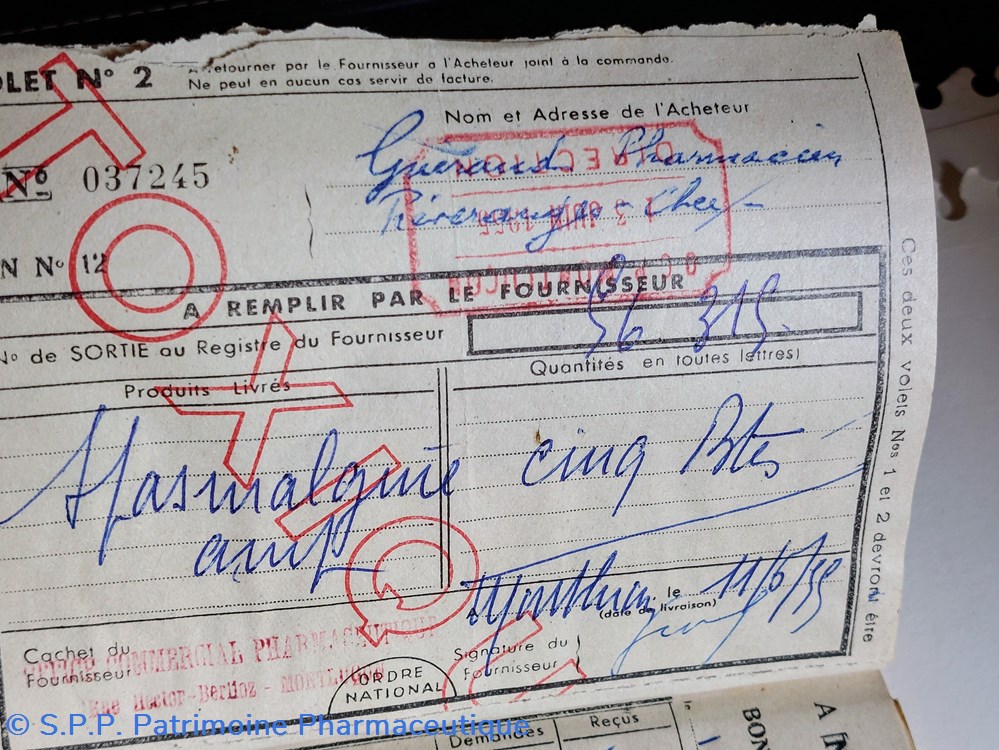 VOLET Nº 2
A retourner par le Fournisseur a l'Acheteur joint à la commande.
Ne peut en aucun cas servir de facture.
Nom et Adresse de l'Acheteur
Nº 037245
Guérand Pharmacien
DIRECTION
13 JUIN 1955
N Nº 12
A REMPLIR PAR LE FOURNISSEUR
Nº de SORTIE au Registre du Fournisseur
56 315.
Produits Livrés
Quantités en toutes lettres)
Spasmalgine
cinq Btes
amp
Montluçon le 11/6/55
(date de livraison)
Cachet du
Fournisseur
COMMERCIAL PHARMACEUTIQUE
Rue Hector-Berlioz - MONTLUÇON
ORDRE
NATIONAL
Signature du
Fournisseur
TOXIQUE
Ces deux volets Nos 1 et 2 devront être
Demandés
Reçus
BON
A
© S.P.P. Patrimoine Pharmaceutique